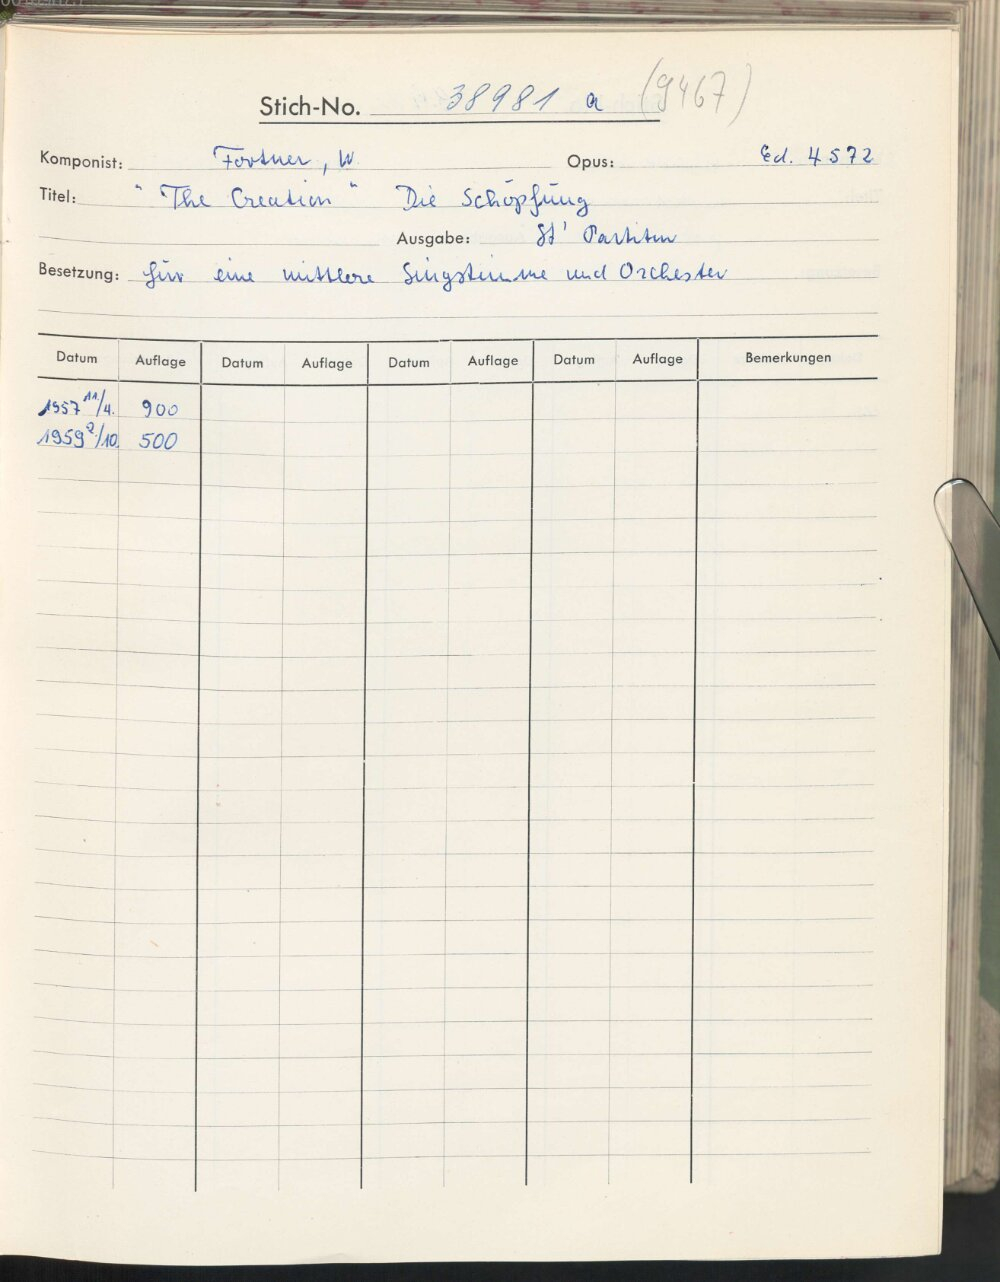 Stich-No. 38981 a (9467)
Komponist: Fortner, W. Opus: Ed. 4572
Titel: "The Creation" Die Schöpfung
Ausgabe: St' Partitur
Besetzung: für eine mittlere Singstimme und Orchester
Datum Auflage Datum Auflage Datum Auflage Datum Auflage Bemerkungen
1957 11./4. 900
1959 2./10. 500